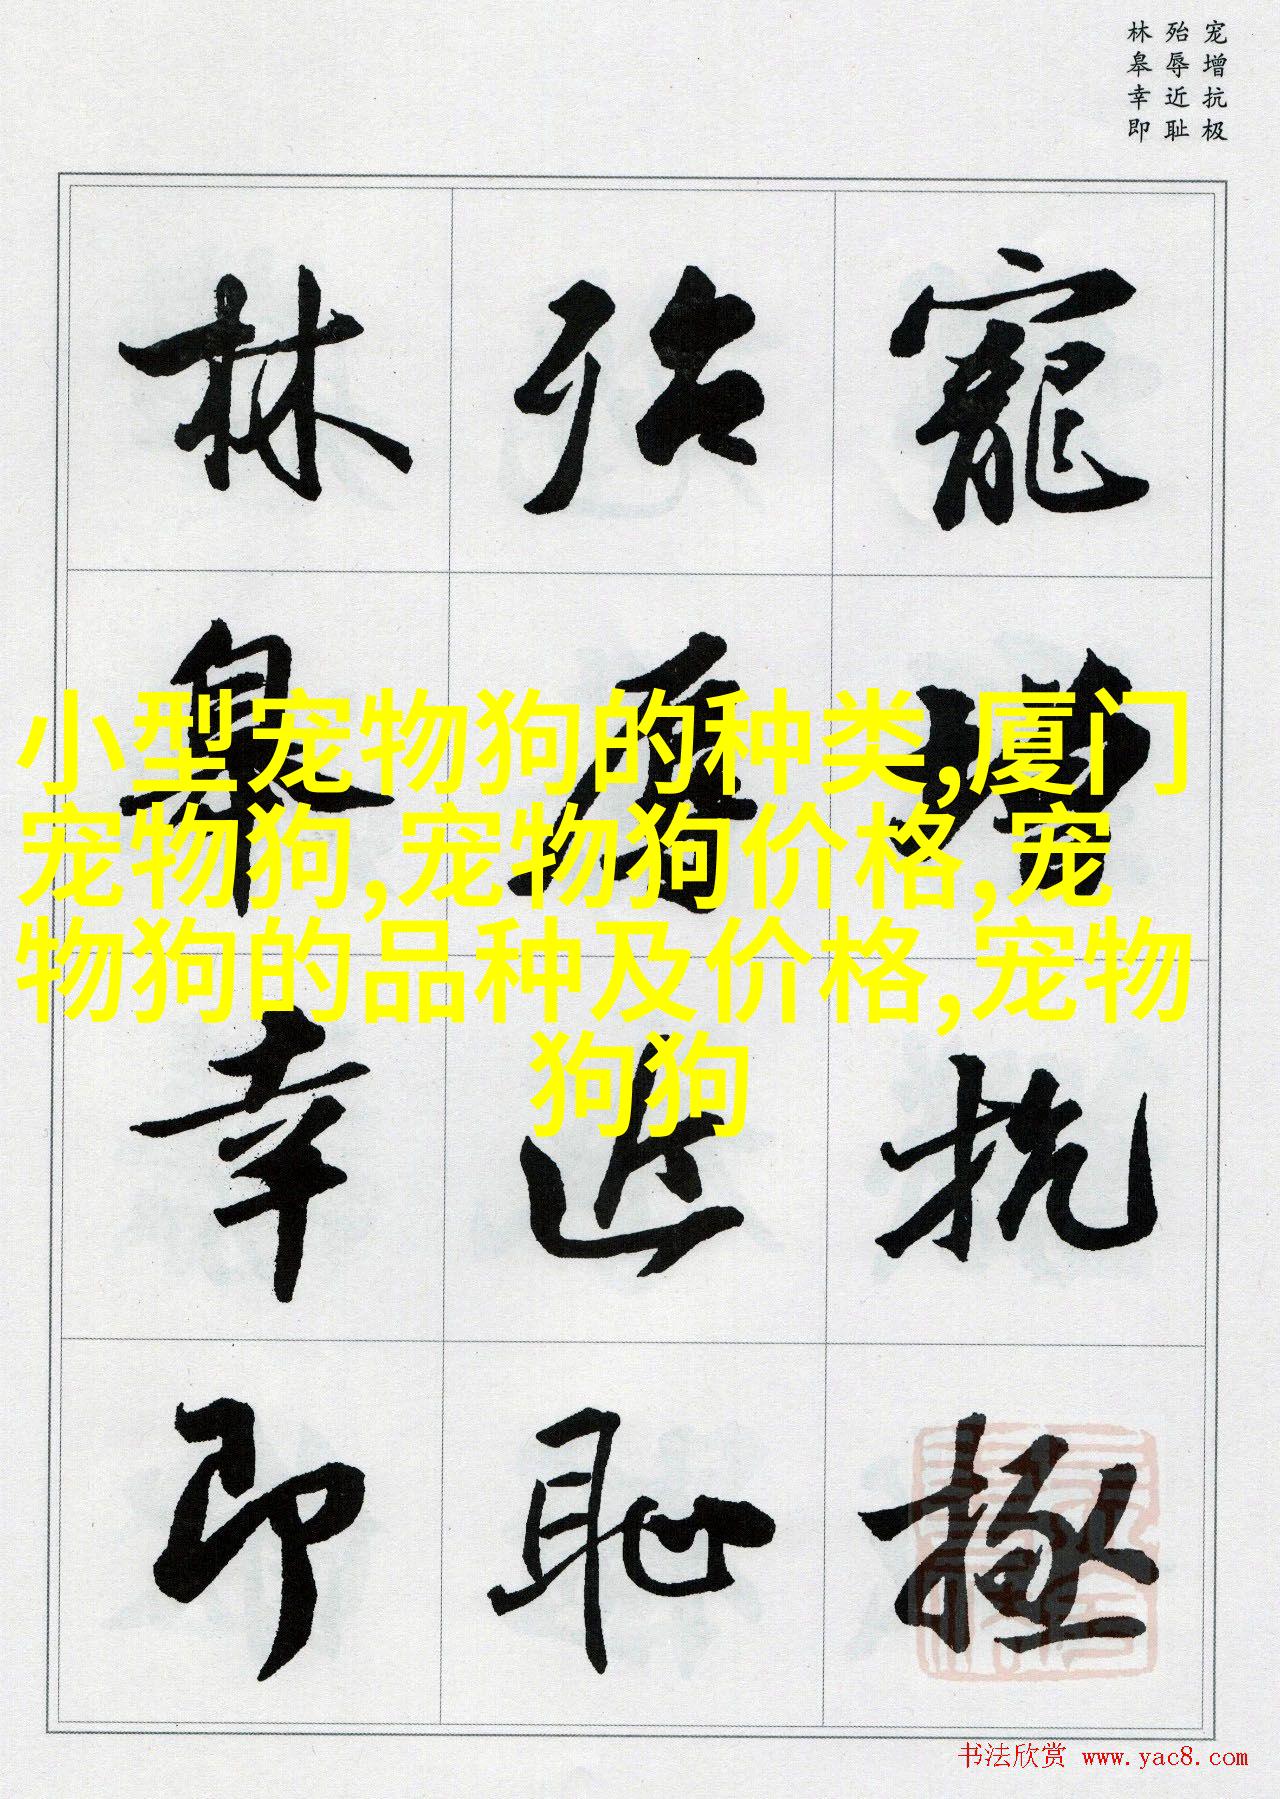 宠增抗极
殆辱近耻
林皋幸即
寵增抗極
殆辱近恥
林皋幸即
小型宠物狗的种类,厦门
宠物狗,宠物狗价格,宠
物狗的品种及价格,宠物
狗狗
书法欣赏 www.yac8.com